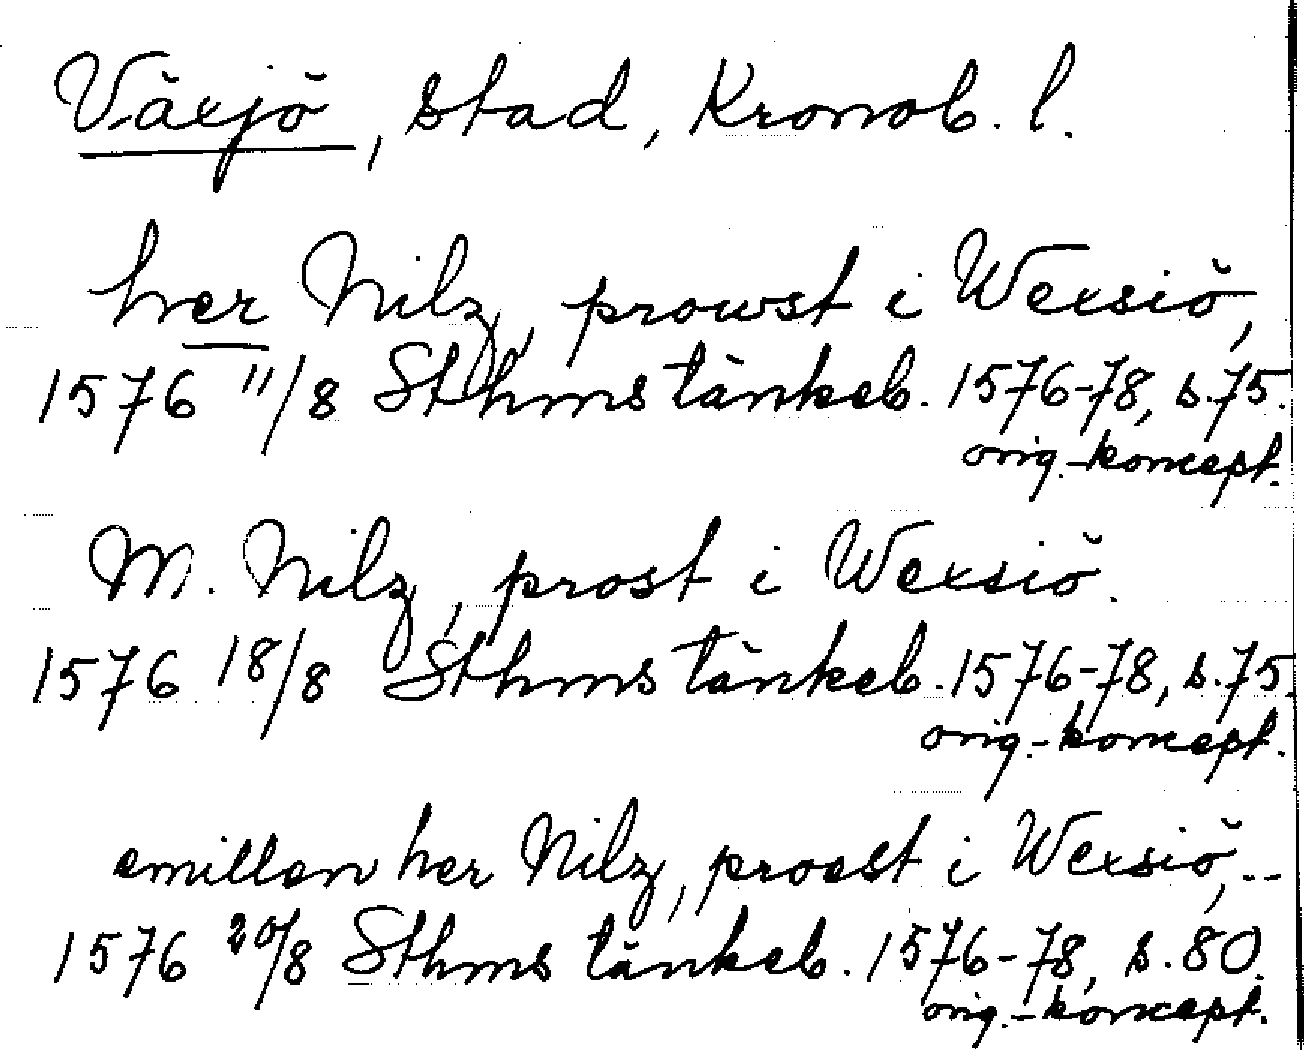 Växjö, stad, Kronob. l.
her Nilz, prowst i Wexsiö,
1576 11/8 Sthms tänkeb. 1576-78, s. 75.
orig.-koncept.
M. Nilz, prost i Wexsiö.
1576 18/8 Sthms tänkeb. 1576-78, s. 75.
orig.-koncept.
emillan her Nilz, proest i Wexsiö, --
1576 20/8 Sthms tänkeb. 1576-78, s. 80.
orig.-koncept.